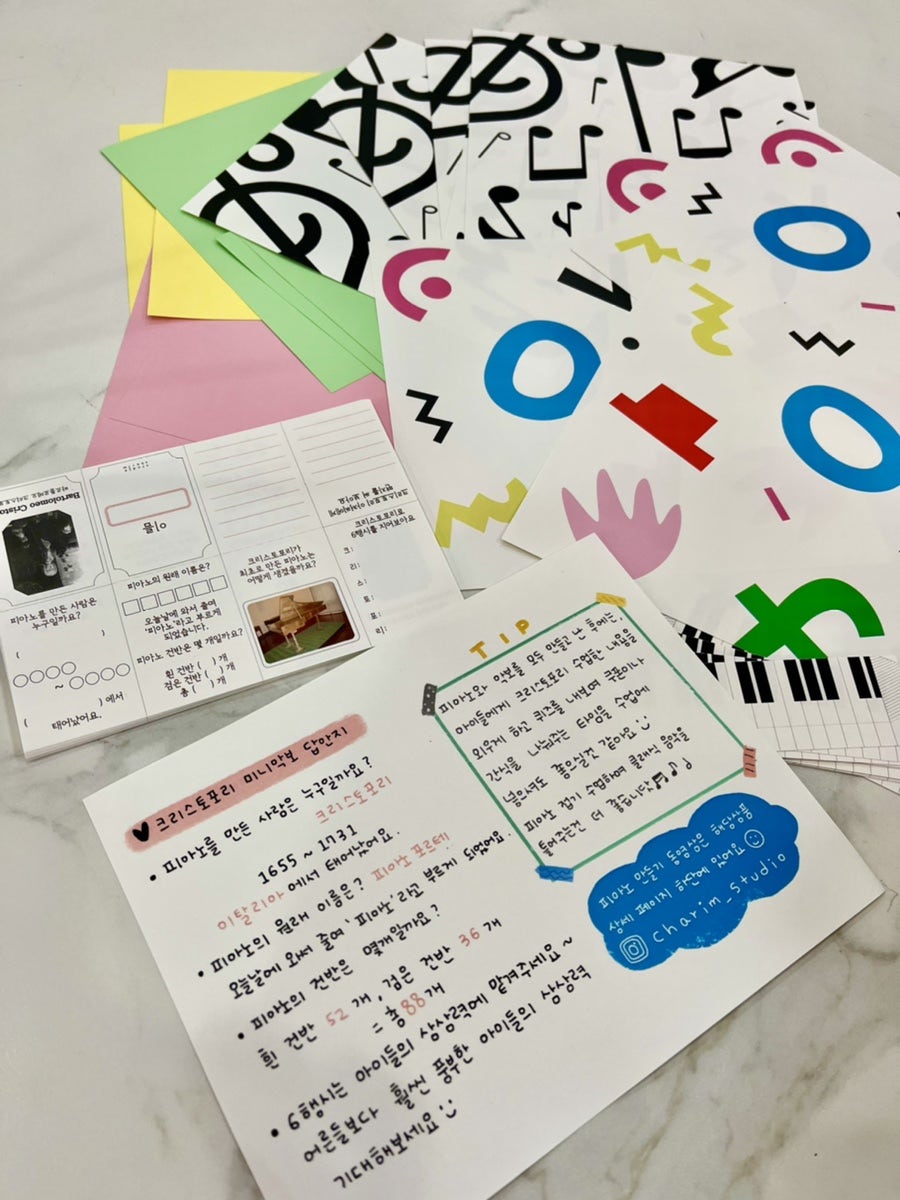 Bartolomeo Cristo
이름
크리스토포리 아저씨에게
편지를 써 보아요
피아노를 만든 사람은
누구일까요?
(
○○○○
~ ○○○○
) 에서
(
태어났어요.
피아노의 원래 이름은?
오늘날에 와서 줄여
'피아노'라고 부르게
되었습니다.
피아노 건반은 몇 개일까요?
흰 건반 ( ) 개
검은 건반 ( ) 개
총 ( ) 개
크리스토포리가
최초로 만든 피아노는
어떻게 생겼을까요?
크리스토포리로
6행시를 지어보아요
크:
리:
스:
토:
포:
리:
♥ 크리스토포리 미니악보 답안지
• 피아노를 만든 사람은 누구일까요?
크리스토포리
1655 ~ 1731
이탈리아 에서 태어났어요.
• 피아노의 원래 이름은? 피아노 포르테!
오늘날에 와서 줄여 '피아노'라고 부르게 되었어요.
• 피아노의 건반은 몇개일까요?
흰 건반 52 개, 검은 건반 36 개
= 총 88 개
• 6행시는 아이들의 상상력에 맡겨주세요~
어른들보다 훨씬 풍부한 아이들의 상상력
기대해보세요
TIP
피아노와 악보를 모두 만들고 난 후에는,
아이들에게 크리스토포리 수업한 내용을
외우게 하고 퀴즈를 내보며 쿠폰이나
간식을 나눠주는 타임을 수업에
넣으셔도 좋을것 같아요
피아노 접기 수업하며 클래식 음악을
틀어주는건 더 좋답니닷
피아노 만들기 동영상은 해당상품
상세 페이지 하단에 있어요
@charim_studio